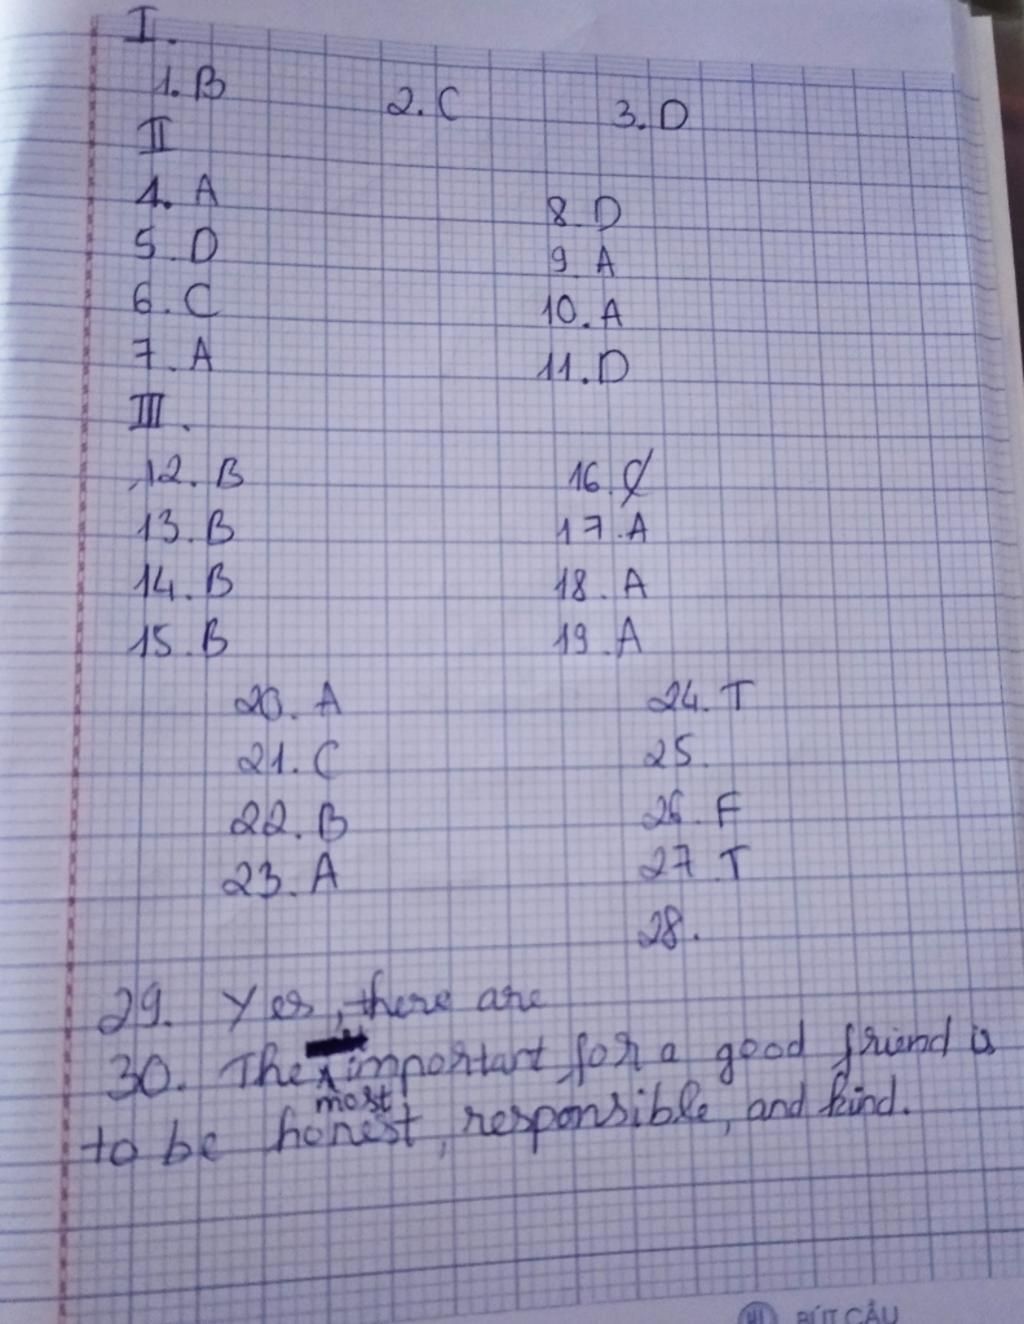 I.
1. B 2. C 3. D
II
4. A 8. D
5. D 9. A
6. C 10. A
7. A 11. D
III.
12. B 16. C
13. B 17. A
14. B 18. A
15. B 19. A
20. A 24. T
21. C 25.
22. B 26. F
23. A 27. T
28.
29. Yes, there are
30. The most important for a good friend is
to be honest, responsible, and kind.
BÚT CẦU